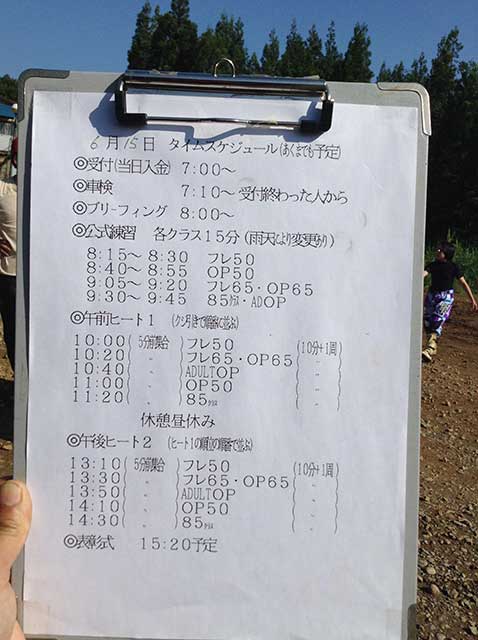 6月15日 タイムスケジュール(あくまでも予定)
◎受付(当日入金) 7:00～
◎車検 7:10～ 受付終わった人から
◎ブリーフィング 8:00～
◎公式練習 各クラス15分 (雨天により変更有り)
8:15～ 8:30 フレ50
8:40～ 8:55 OP50
9:05～ 9:20 フレ65・OP65
9:30～ 9:45 85クラス・ADOP
◎午前ヒート1 (クジ引きで順番に並ぶ)
10:00(5分前集合)フレ50 (10分+1周)
10:20( 〃 )フレ65・OP65
10:40( 〃 )ADULTOP
11:00( 〃 )OP50
11:20( 〃 )85クラス
休憩昼休み
◎午後ヒート2 (ヒート1の順位の順番で並ぶ)
13:10(5分前集合)フレ50 (10分+1周)
13:30( 〃 )フレ65・OP65
13:50( 〃 )ADULTOP
14:10( 〃 )OP50
14:30( 〃 )85クラス
◎表彰式 15:20予定